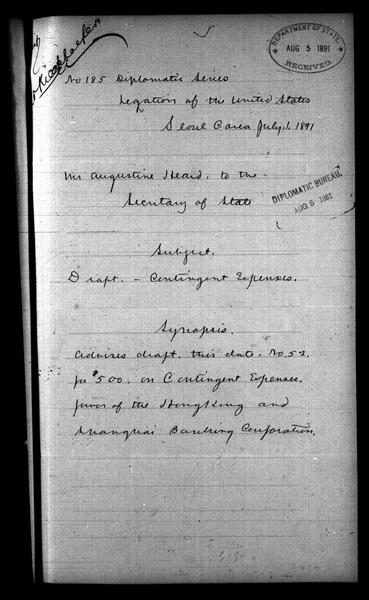 DEPARTMENT OF STATE
AUG 5 1891
RECEIVED.
No 185 Diplomatic Series
Legation of the United States
Seoul Corea July 1. 1891
Mr Augustine Heard. to the.
Secretary of State
DIPLOMATIC BUREAU,
AUG 6 1891
Subject.
Draft. - Contingent Expenses.
Synopsis.
Advises draft, this date, No 52.
for $500. on Contingent Expenses.
favor of the HongKong and
Shanghai Banking Corporation.